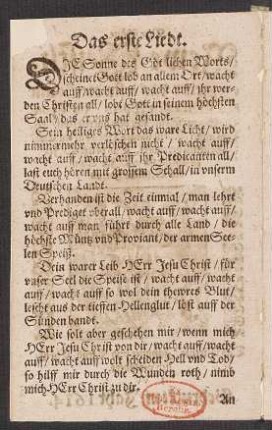 Das erste Liedt.
DIE Sonne des Götlichen Worts/
scheinet Gott lob an allem Ort/wacht
auff/wacht auff/ wacht auff/ ihr wer-
den Christen all/ lobt Gott in seinem höchsten
Saal/ das er vns hat gesandt.
Sein heiliges Wort das ware Licht/ wird
nimmermehr verleschen nicht/ wacht auff/
wacht auff/ wacht auff ihr Predicanten all/
last euch hören mit grossem Schall/ in vnserm
Deutschen Landt.
Verhanden ist die Zeit einmal/ man lehrt
vnd Prediget vberall/ wacht auff/ wacht auff/
wacht auff man führt durch alle Land/ die
höchste Müntz vnd Proviant/ der armen See-
len Speiß.
Dein warer Leib HErr Jesu Christ/ für
vnser Seel die Speise ist/ wacht auff/ wacht
auff/ wacht auff so wol dein thewres Blut/
lescht aus der tieffen Hellenglut/ löst auff der
Sünden bandt.
Wie solt aber geschehen mir/ wenn mich
HErr Jesu Christ von dir/ wacht auff/ wacht
auff/ wacht auff wolt scheiden Hell vnd Tod/
so hilff mir durch die Wunden roth/ nimb
mich HErr Christ zu dir.
An